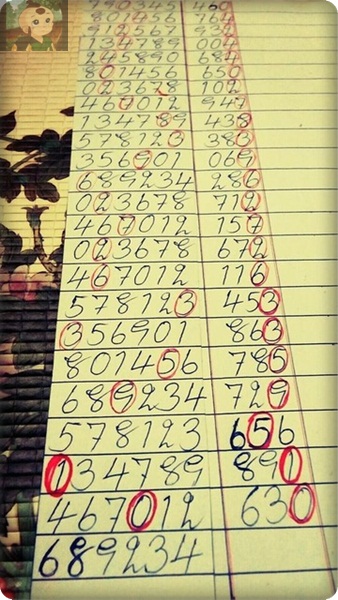 790345 450
801456 764
912567 932
134789 004
245890 684
801456 650
023678 102
467012 947
134789 438
578123 383
356901 069
689234 286
023678 712
467012 157
023678 672
467012 116
578123 453
356901 863
801456 785
689234 729
578123 656
134789 891
467012 630
689234